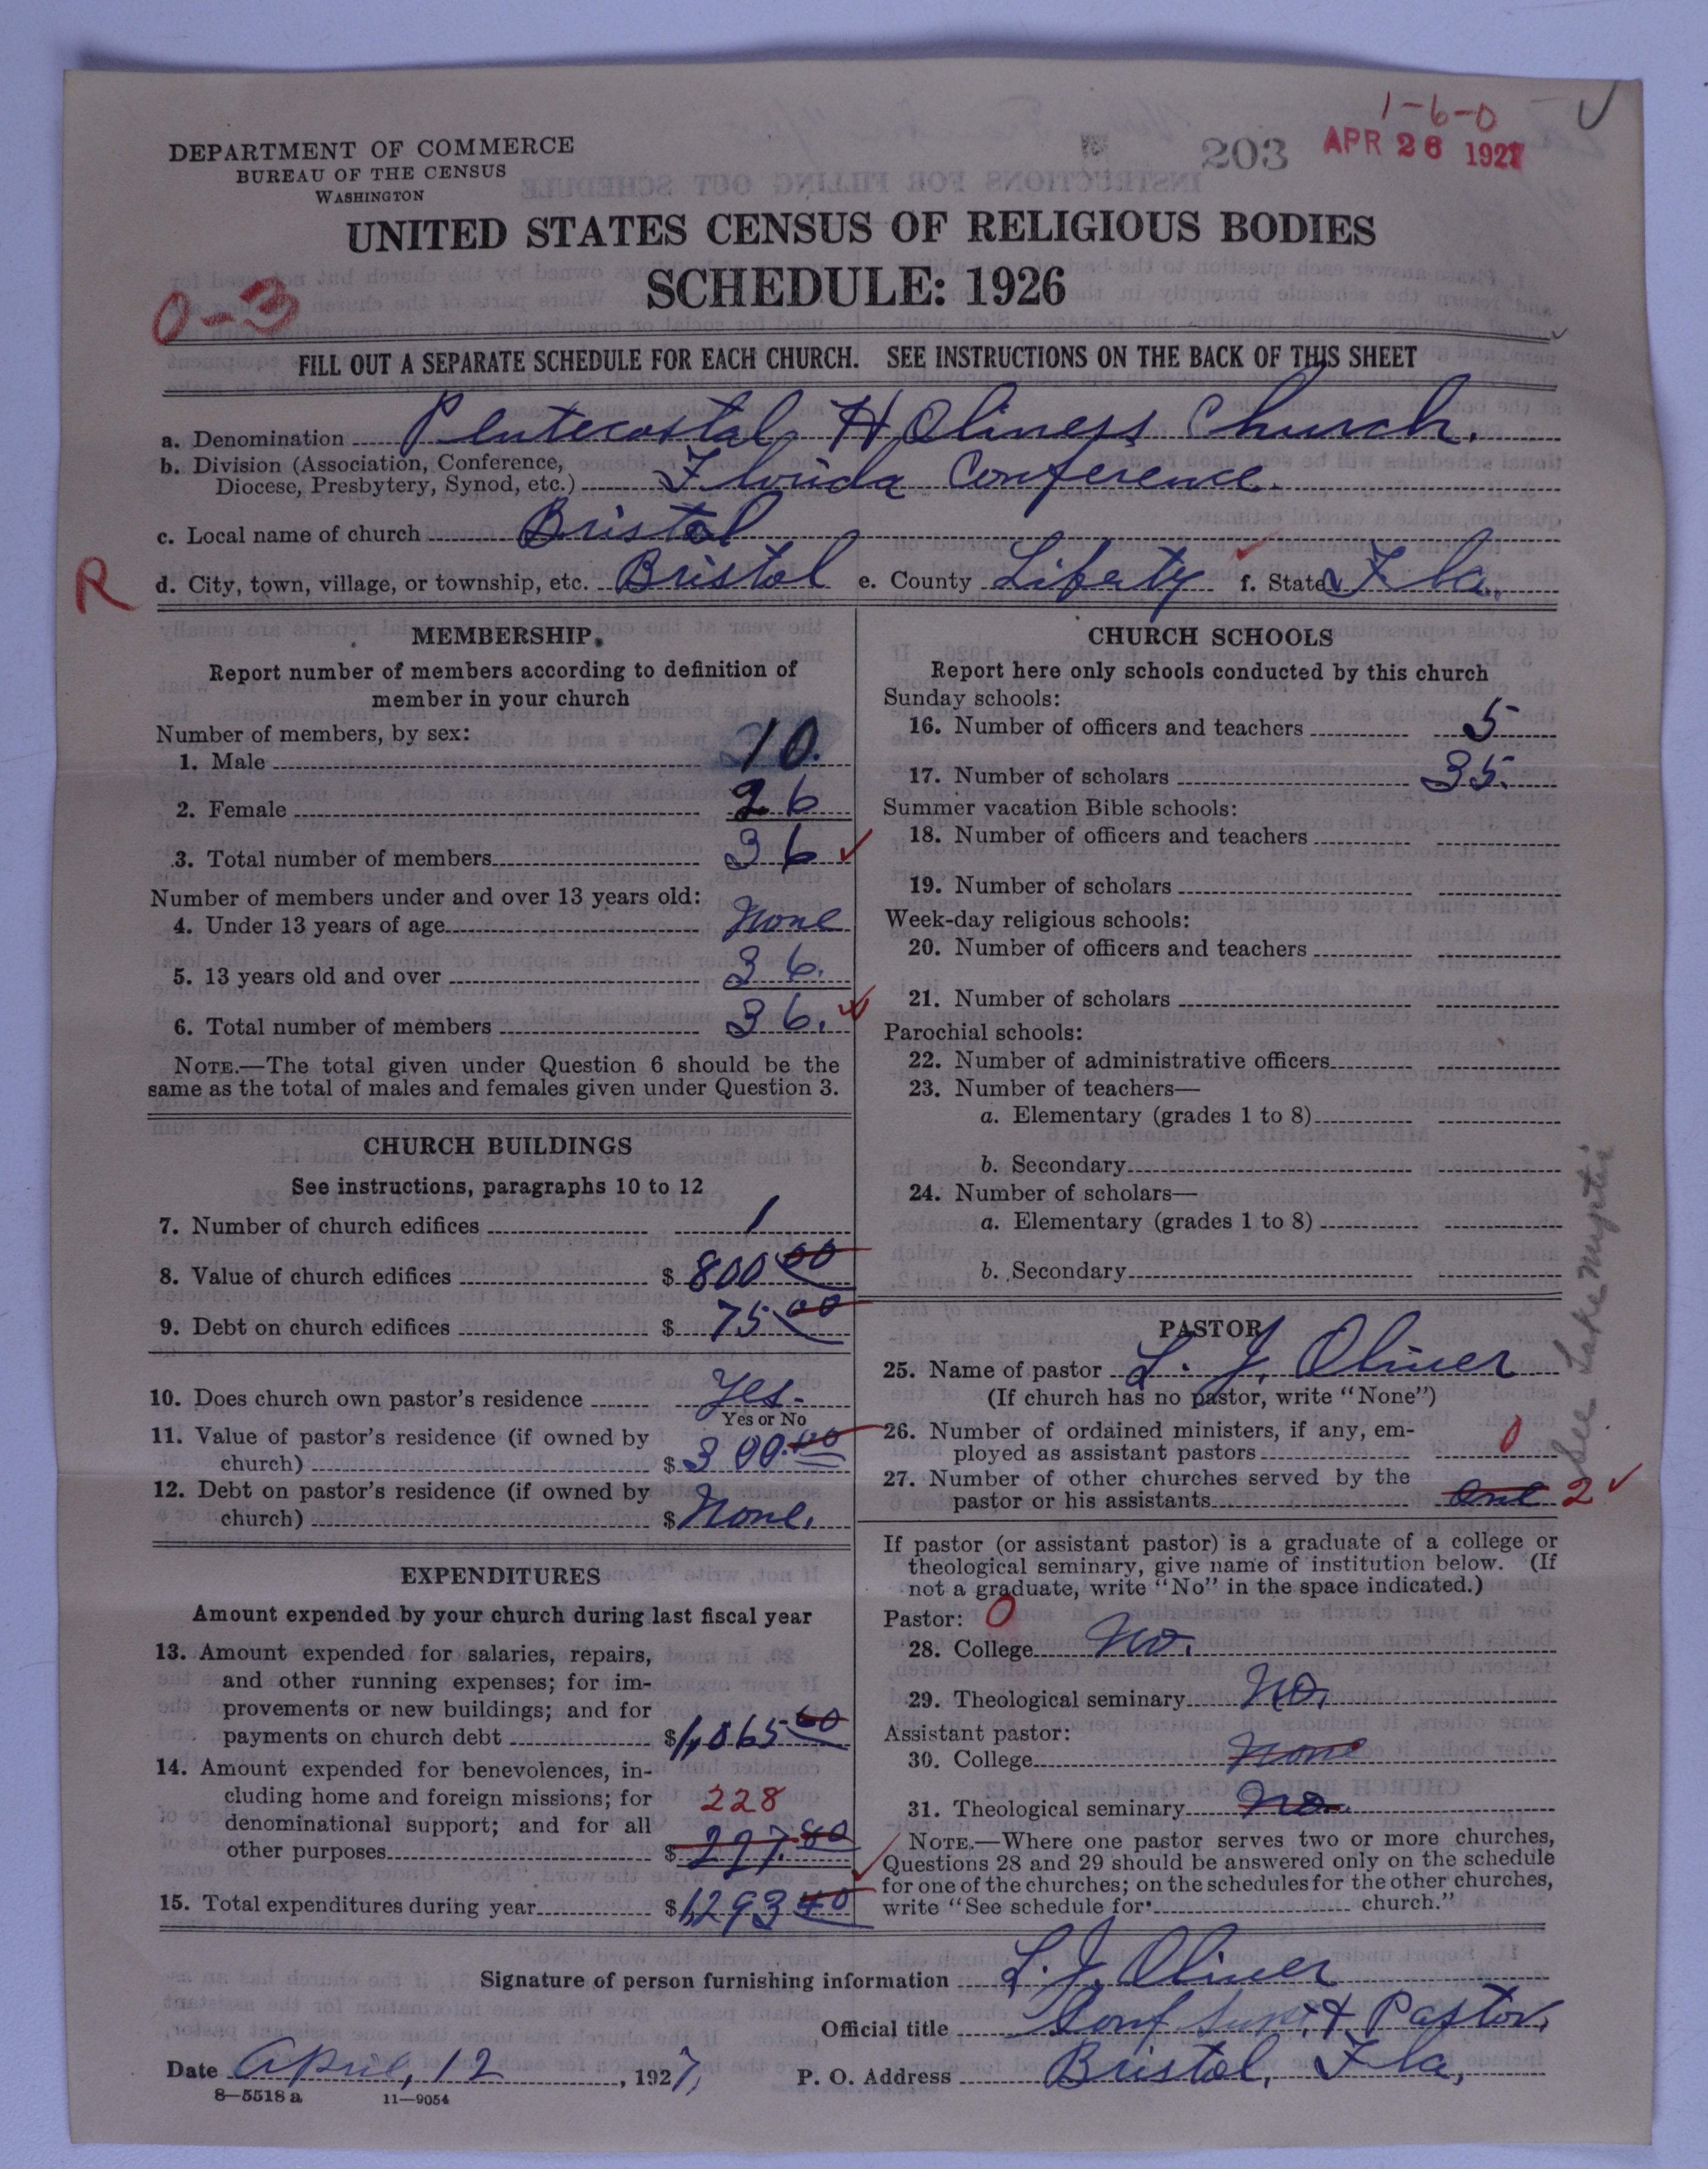 1-6-0
DEPARTMENT OF COMMERCE
BUREAU OF THE CENSUS
WASHINGTON
203 APR 26 1927
UNITED STATES CENSUS OF RELIGIOUS BODIES
SCHEDULE: 1926
0-3
FILL OUT A SEPARATE SCHEDULE FOR EACH CHURCH. SEE INSTRUCTIONS ON THE BACK OF THIS SHEET
a. Denomination Pentecostal Holiness Church.
b. Division (Association, Conference,
Diocese, Presbytery, Synod, etc.) Florida Conference.
c. Local name of church Bristol
R
d. City, town, village, or township, etc. Bristol e. County Liberty f. State Fla.
MEMBERSHIP
Report number of members according to definition of
member in your church
Number of members, by sex:
1. Male 10.
2. Female 26
3. Total number of members 36
Number of members under and over 13 years old:
4. Under 13 years of age None
5. 13 years old and over 36.
6. Total number of members 36.
NOTE.—The total given under Question 6 should be the
same as the total of males and females given under Question 3.
CHURCH BUILDINGS
See instructions, paragraphs 10 to 12
7. Number of church edifices 1
8. Value of church edifices $ 800 00
9. Debt on church edifices $ 75.00
10. Does church own pastor's residence Yes.
Yes or No
11. Value of pastor's residence (if owned by
church) $ 300.00
12. Debt on pastor's residence (if owned by
church) $ None.
EXPENDITURES
Amount expended by your church during last fiscal year
13. Amount expended for salaries, repairs,
and other running expenses; for im-
provements or new buildings; and for
payments on church debt $1,065.60
14. Amount expended for benevolences, in-
cluding home and foreign missions; for 228
denominational support; and for all
other purposes $ 227.80
15. Total expenditures during year $1,293 40
CHURCH SCHOOLS
Report here only schools conducted by this church
Sunday schools:
16. Number of officers and teachers 5
17. Number of scholars 35.
Summer vacation Bible schools:
18. Number of officers and teachers
19. Number of scholars
Week-day religious schools:
20. Number of officers and teachers
21. Number of scholars
Parochial schools:
22. Number of administrative officers
23. Number of teachers—
a. Elementary (grades 1 to 8)
b. Secondary
24. Number of scholars—
a. Elementary (grades 1 to 8)
b. Secondary
PASTOR
25. Name of pastor L. J. Oliver
(If church has no pastor, write "None")
26. Number of ordained ministers, if any, em-
ployed as assistant pastors 0
27. Number of other churches served by the
pastor or his assistants One 2
See Lake Mystic
If pastor (or assistant pastor) is a graduate of a college or
theological seminary, give name of institution below. (If
not a graduate, write "No" in the space indicated.)
Pastor: 0
28. College No.
29. Theological seminary No.
Assistant pastor:
30. College None
31. Theological seminary No.
NOTE.—Where one pastor serves two or more churches,
Questions 28 and 29 should be answered only on the schedule
for one of the churches; on the schedules for the other churches,
write "See schedule for church."
Signature of person furnishing information L. J. Oliver
Official title Conf Supt. & Pastor.
Date April, 12, 1927, P. O. Address Bristol, Fla,
8—5518 a 11—9054